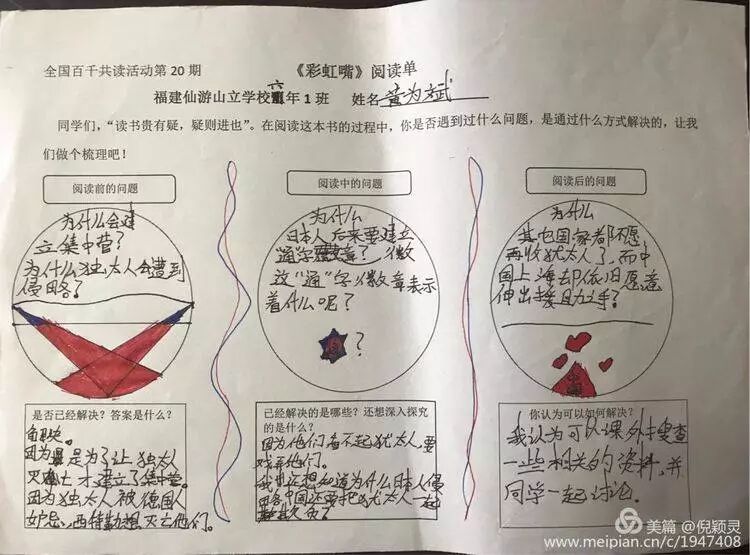 全国百千共读活动第 20 期
《彩虹嘴》阅读单
福建仙游山立学校六年 1 班 姓名 黄为斌
同学们,“读书贵有疑,疑则进也”。在阅读这本书的过程中,你是否遇到过什么问题,是通过什么方式解决的,让我
们做个梳理吧!
阅读前的问题
为什么会建
立集中营?
为什么独太人会遭到
侵略?
阅读中的问题
为什么
日本人后来要建立
“通”字徽章?
这“通”字徽章表示
着什么呢?
?
阅读后的问题
为什么
其它国家都不愿
再收犹太人了,而中
国上海却依旧愿意
伸出援助之手?
是否已经解决?答案是什么?
解决。
因为是为了让独太人
灭亡才建立了集中营。
因为独太人被德国人
妒忌,西特勒想灭亡他们。
已经解决的是哪些?还想深入探究
的是什么?
因为他们看不起犹太人,要
戏弄他们。
我还想知道为什么日本人侵
略中国还要把犹太人一起
你认为可以如何解决?
我认为可以课外搜查
一些相关的资料,并
同学一起讨论。
美篇@倪颖灵
www.meipian.cn/c/1947408